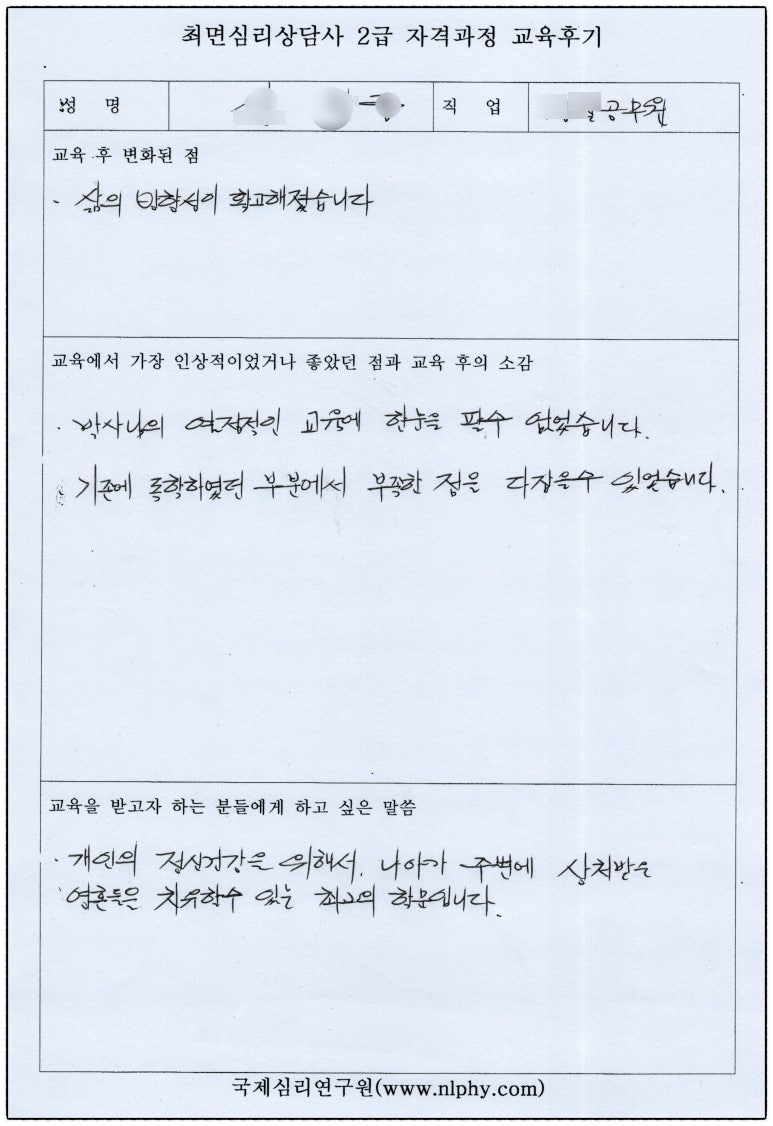 최면심리상담사 2급 자격과정 교육후기
성 명 직 업 공무원
교육 후 변화된 점
· 삶의 방향성이 확고해졌습니다
교육에서 가장 인상적이었거나 좋았던 점과 교육 후의 소감
· 박사님의 열정적인 교육에 한눈을 팔수 없었습니다.
기존에 독학하였던 부분에서 부족한 점을 다잡을수 있었습니다.
교육을 받고자 하는 분들에게 하고 싶은 말씀
· 개인의 정신건강을 위해서. 나아가 주변에 상처받은
영혼들은 치유할수 있는 최고의 학문입니다.
국제심리연구원(www.nlphy.com)